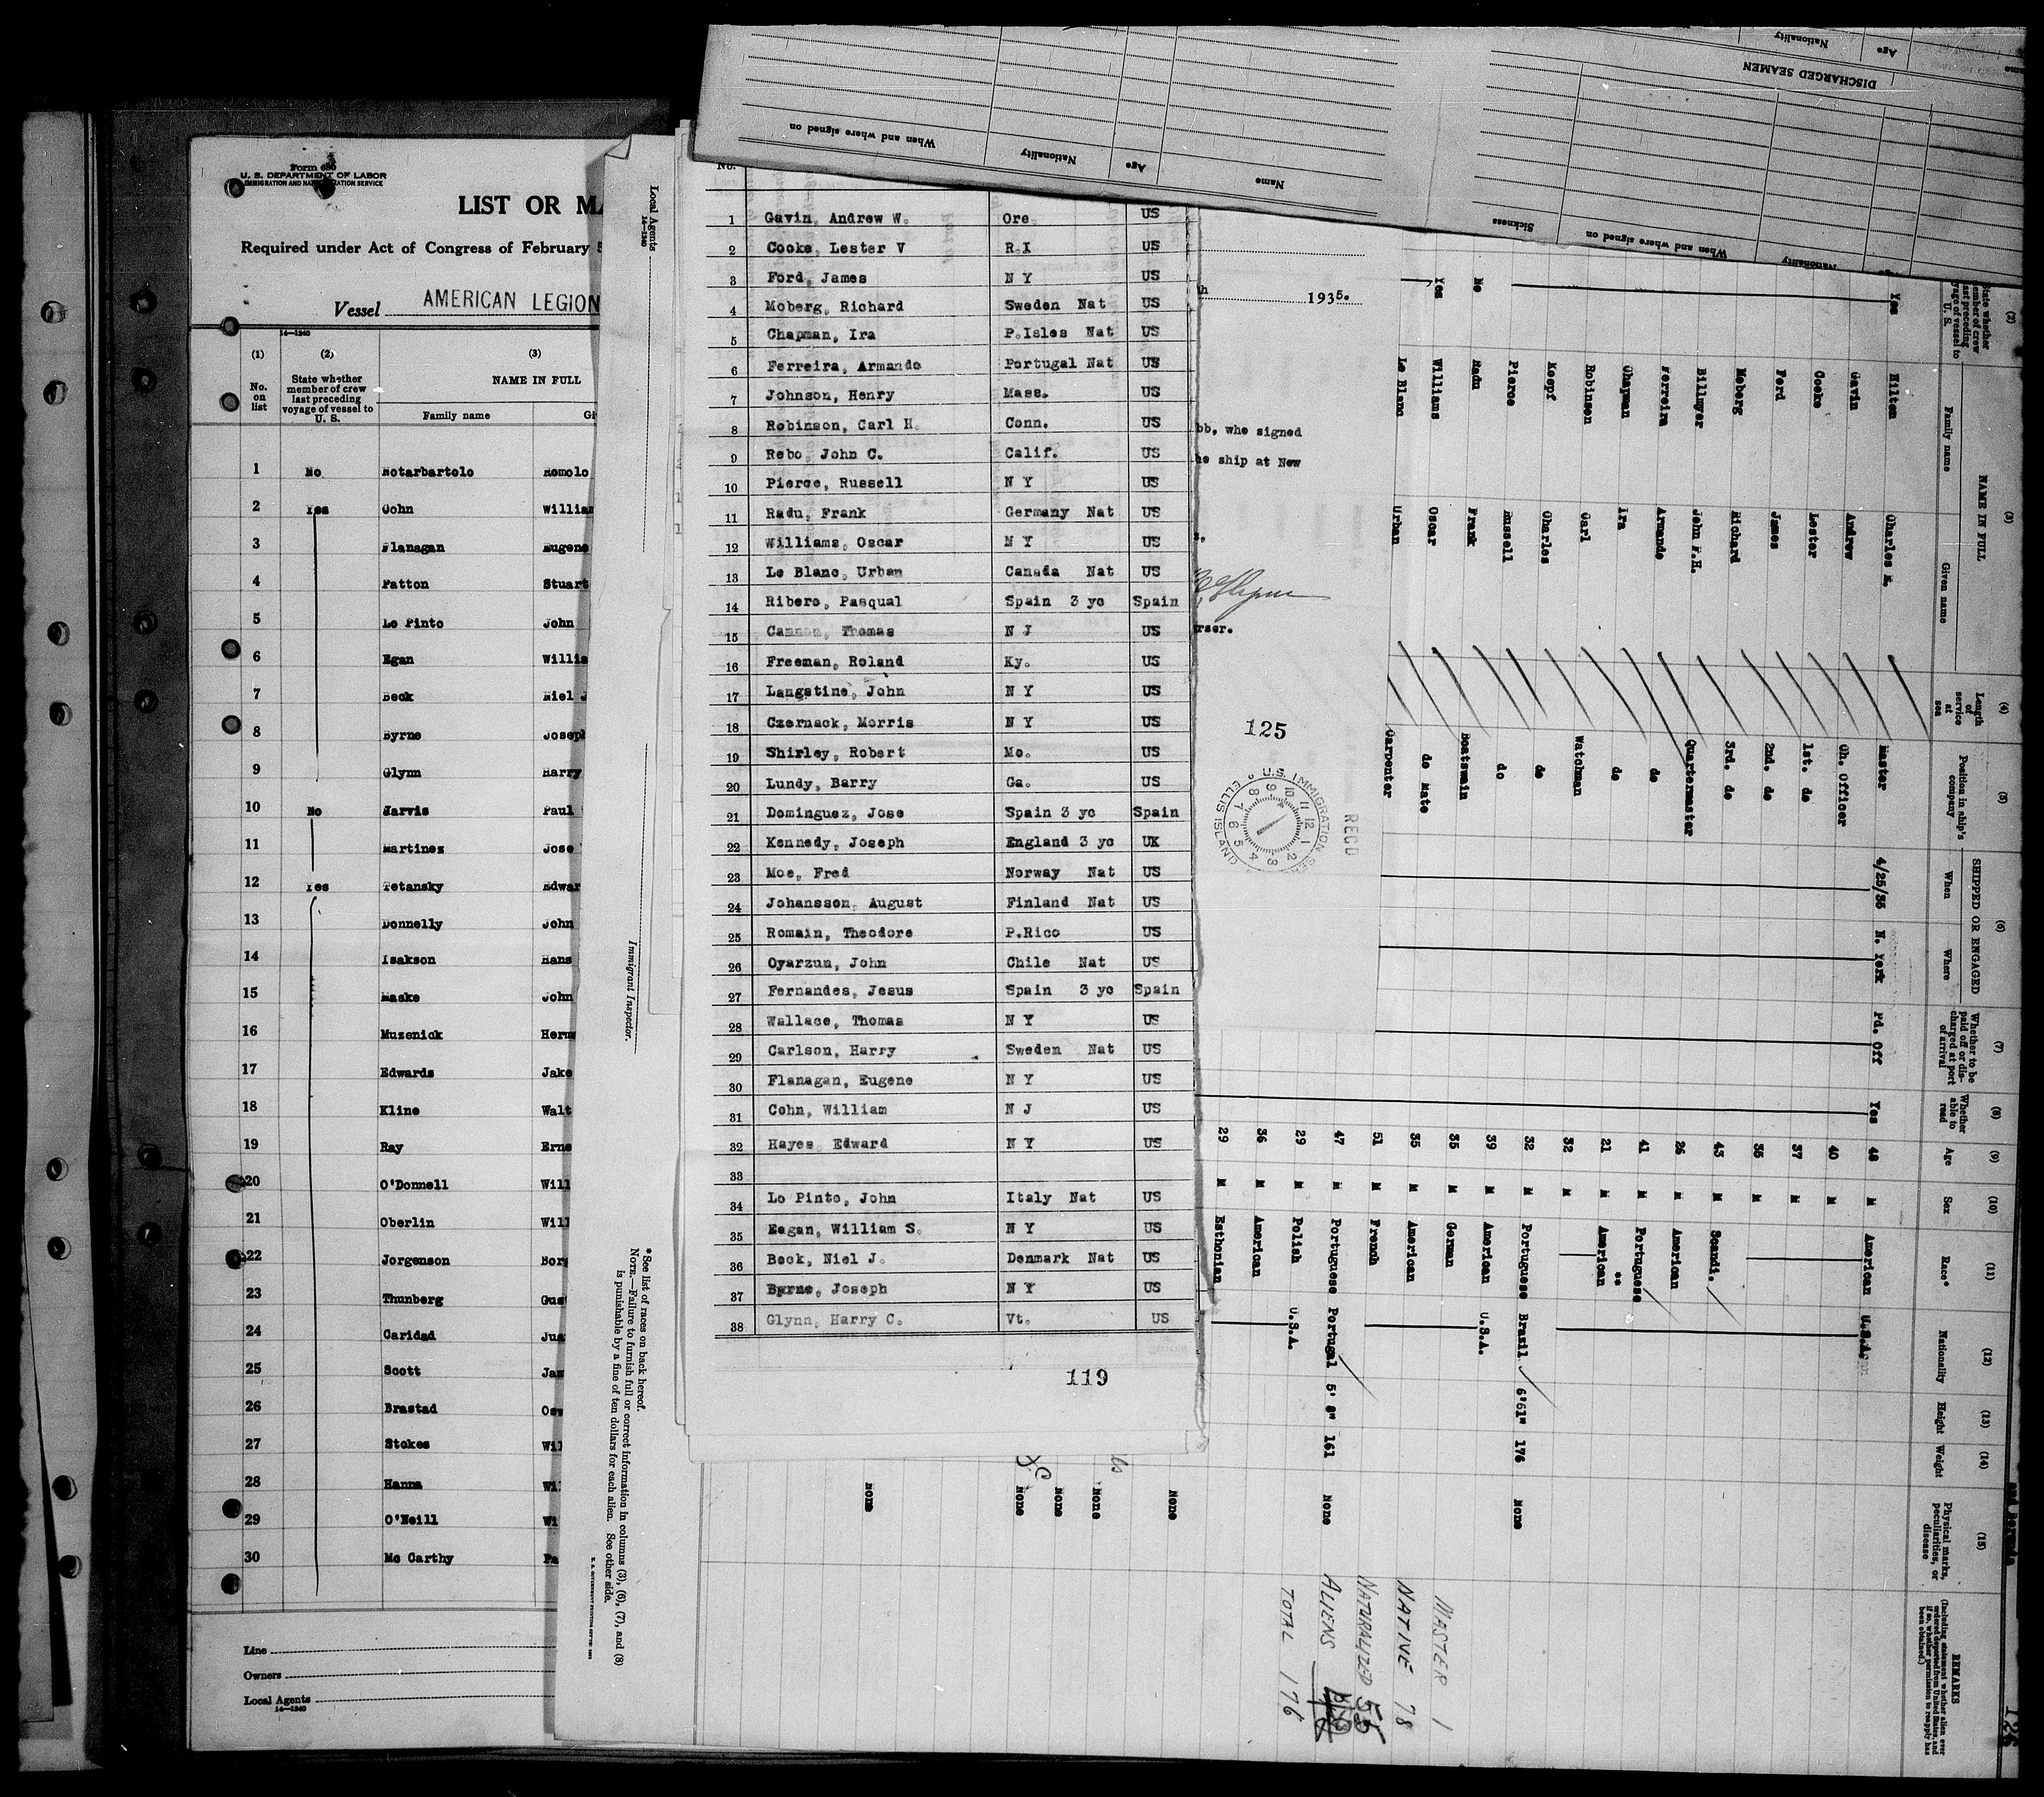 Form 680
U. S. DEPARTMENT OF LABOR
IMMIGRATION AND NATURALIZATION SERVICE
LIST OR MA
Required under Act of Congress of February 5
Vessel AMERICAN LEGION
14—1240
(1) (2) (3)
No. on list
State whether member of crew last preceding voyage of vessel to U. S.
NAME IN FULL
Family name Gi
1 No Notarbartolo Romolo
2 Yes Cohn William
3 Flanagan Eugene
4 Patton Stuart
5 Lo Pinto John
6 Egan Willia
7 Beck Niel J
8 Byrne Joseph
9 Glynn Harry
10 No Jarvis Paul
11 Martinez Jose
12 Yes Tetansky Edwar
13 Donnelly John
14 Isakson Hans
15 Maske John
16 Muzenick Herm
17 Edwards Jake
18 Kline Walt
19 Ray Erne
20 O'Donnell Will
21 Oberlin Will
22 Jorgenson Borg
23 Thunberg Gus
24 Caridad Jua
25 Scott Jam
26 Brastad Osw
27 Stokes Wil
28 Hanna Wi
29 O'Neill Wi
30 Mc Carthy Pa
Line
Owners
Local Agents
14—1240
Local Agents
14—1240
Immigrant Inspector.
* See list of races on back hereof.
NOTE.—Failure to furnish full or correct information in columns (3), (6), (7), and (8)
is punishable by a fine of ten dollars for each alien. See other side.
No.
1 Gavin, Andrew W. Ore. US
2 Cooke, Lester V R.I US
3 Ford, James N Y US
4 Moberg, Richard Sweden Nat US
5 Chapman, Ira P.Isles Nat US
6 Ferreira, Armando Portugal Nat US
7 Johnson, Henry Mass. US
8 Robinson, Carl H. Conn. US
9 Rebo, John C. Calif. US
10 Pierce, Russell N Y US
11 Radu, Frank Germany Nat US
12 Williams, Oscar N Y US
13 Le Blanc, Urban Canada Nat US
14 Ribero, Pasqual Spain 3 yc Spain
15 Cannon, Thomas N J US
16 Freeman, Roland Ky. US
17 Langstine, John N Y US
18 Czernack, Morris N Y US
19 Shirley, Robert Mo. US
20 Lundy, Barry Ga. US
21 Dominguez, Jose Spain 3 yc Spain
22 Kennedy, Joseph England 3 yc UK
23 Moe, Fred Norway Nat US
24 Johansson, August Finland Nat US
25 Romain, Theodore P.Rico US
26 Oyarzun, John Chile Nat US
27 Fernandes, Jesus Spain 3 yc Spain
28 Wallace, Thomas N Y US
29 Carlson, Harry Sweden Nat US
30 Flanagan, Eugene N Y US
31 Cohn, William N J US
32 Hayes, Edward N Y US
33
34 Lo Pinto, John Italy Nat US
35 Eagan, William S. N Y US
36 Beck, Niel J. Denmark Nat US
37 Byrne, Joseph N Y US
38 Glynn, Harry C. Vt. US
119
When and where signed on
Nationality
Age
Name
DISCHARGED SEAMEN
Nationality
Age
Sickness
When and where signed on
Nationality
1935.
bb, who signed
he ship at New
rser.
125
U.S. IMMIGRATION SER
ELLIS ISLAND
RECD
(2) State whether member of crew last preceding voyage of vessel to U. S.
(3) NAME IN FULL
Family name Given name
(4) Length of service at sea
(5) Position in ship's company
(6) SHIPPED OR ENGAGED
When Where
(7) Whether to be paid off or discharged at port of arrival
(8) Whether able to read
(9) Age
(10) Sex
(11) Race*
(12) Nationality
(13) Height
(14) Weight
(15) Physical marks, peculiarities, or disease
REMARKS
(Including statement whether alien ever ordered deported from United States, and if so, whether permission to reapply has been obtained.)
126
Yes Hilton Charles M. Master 4/25/35 N. York Pd. Off Yes 48 M American U.S.A.
Gavin Andrew Ch. Officer 40 M
Cooke Lester 1st. do 37 M
Ford James 2nd. do 35 M
Moberg Richard 3rd. do 43 M Scandi.
Billmyer John F.H. Quartermaster 26 M American
Ferreira Armando do 41 M Portuguese
Chapman Ira do 21 M American
Robinson Carl Watchman 32 M
Koepf Charles do 32 M Portuguese Brazil 176 None
Pierce Russell do 39 M American U.S.A.
No Radu Frank Boatswain 35 M German
Yes Williams Oscar do Mate 35 M American
Le Blanc Urban Carpenter 51 M French
47 M Portuguese Portugal 5' 8" 161 None
29 M Polish U.S.A.
36 M American
29 M Esthonian
None
None
None
None
None
MASTER 1
NATIVE 78
NATURALIZED 55
ALIENS
TOTAL 176